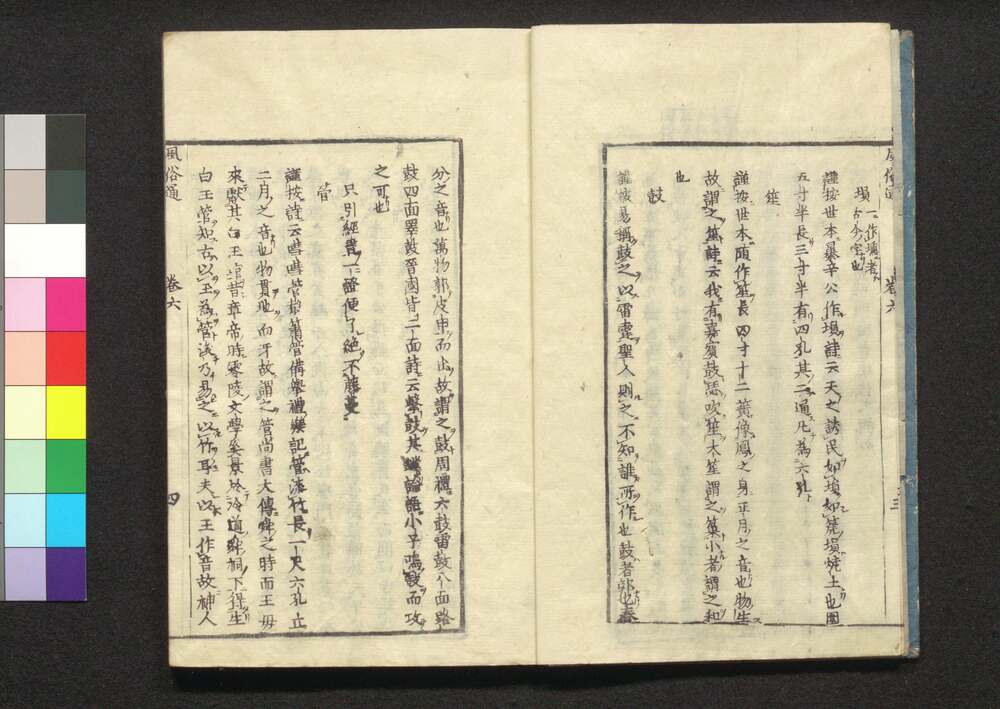 風俗通
卷六
三
塤 一作壎者
古今字也
謹按世本暴辛公作塤詩云天之誘民如塤如箎塤燒土也圍
五寸半長三寸半有四孔其二通凡為六孔
笙
謹按世本隨作笙長四寸十二簧像鳳之身正月之音也物生
故謂之笙詩云我有嘉賓鼓瑟吹笙大笙謂之巢小者謂之和
也
鼓
謹按易稱鼓之以雷霆聖人則之不知誰所作也鼓者郭也春
分之音也萬物郭皮甲而出故謂之鼓周禮六鼓雷鼓八面路
鼓四面鼛鼓晉鼓皆二面詩云擊鼓其鏜論語小子鳴鼓而攻
之可也
只引經書一證便了絕不藤蔓
管
謹按詩云嘒嘒管聲簫管備舉禮樂記管漆竹長一尺六孔
二月之音也物貫地而牙故謂之管尚書大傳舜之時西王母
來獻其白玉琯昔章帝時零陵文學奚景於泠道舜祠下得生
白玉管知古以玉為管後乃易之以竹耳夫以玉作音故神人
風俗通
卷六
四